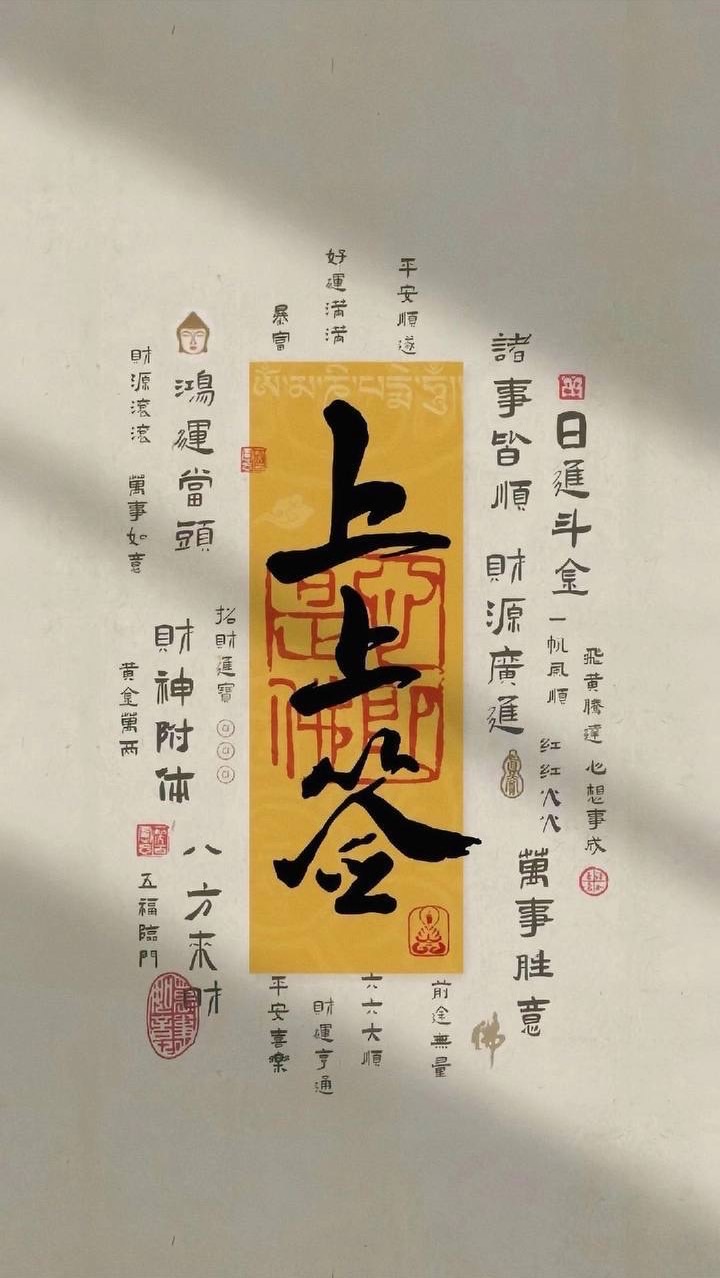 平安順遂
好運滿滿
暴富
日進斗金
諸事皆順
財源廣進
一帆風順
飛黃騰達
心想事成
红红火火
萬事胜意
上上签
心即是佛
ༀ་མ་ཎི་པདྨེ་ཧཱུྃ
鴻運當頭
財源滾滾
萬事如意
招財進寶
財神附体
黃金萬兩
八方来財
五福臨門
前途無量
六六大順
財運亨通
平安喜樂
佛